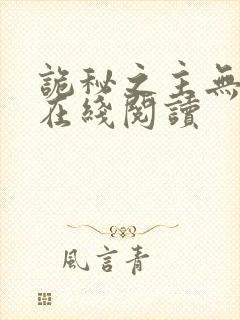 詭秘之主無
在綫閱讀
風言青